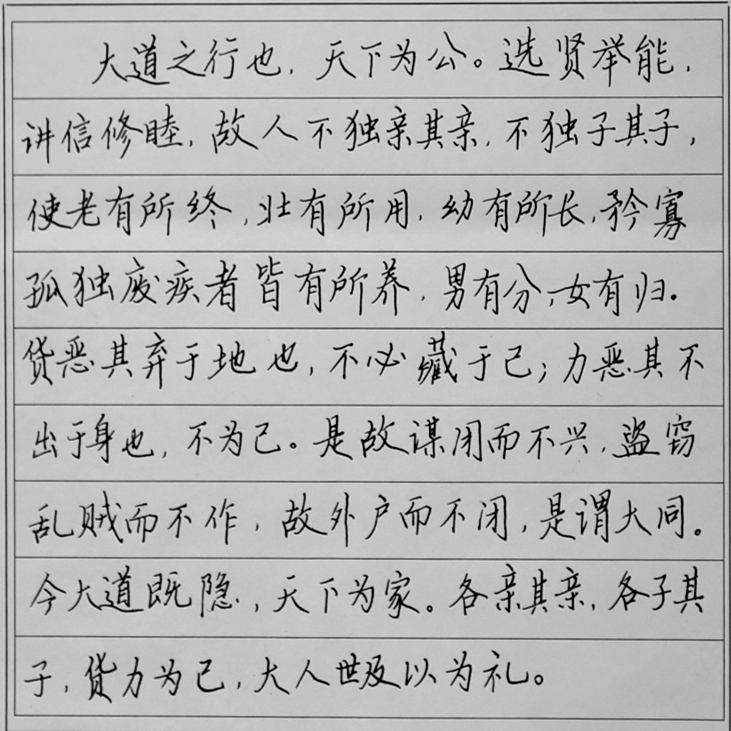 大道之行也，天下为公。选贤举能，
讲信修睦，故人不独亲其亲，不独子其子，
使老有所终，壮有所用，幼有所长，矜寡
孤独废疾者皆有所养，男有分，女有归。
货恶其弃于地也，不必藏于己；力恶其不
出于身也，不为己。是故谋闭而不兴，盗窃
乱贼而不作，故外户而不闭，是谓大同。
今大道既隐，天下为家。各亲其亲，各子其
子，货力为己，大人世及以为礼。